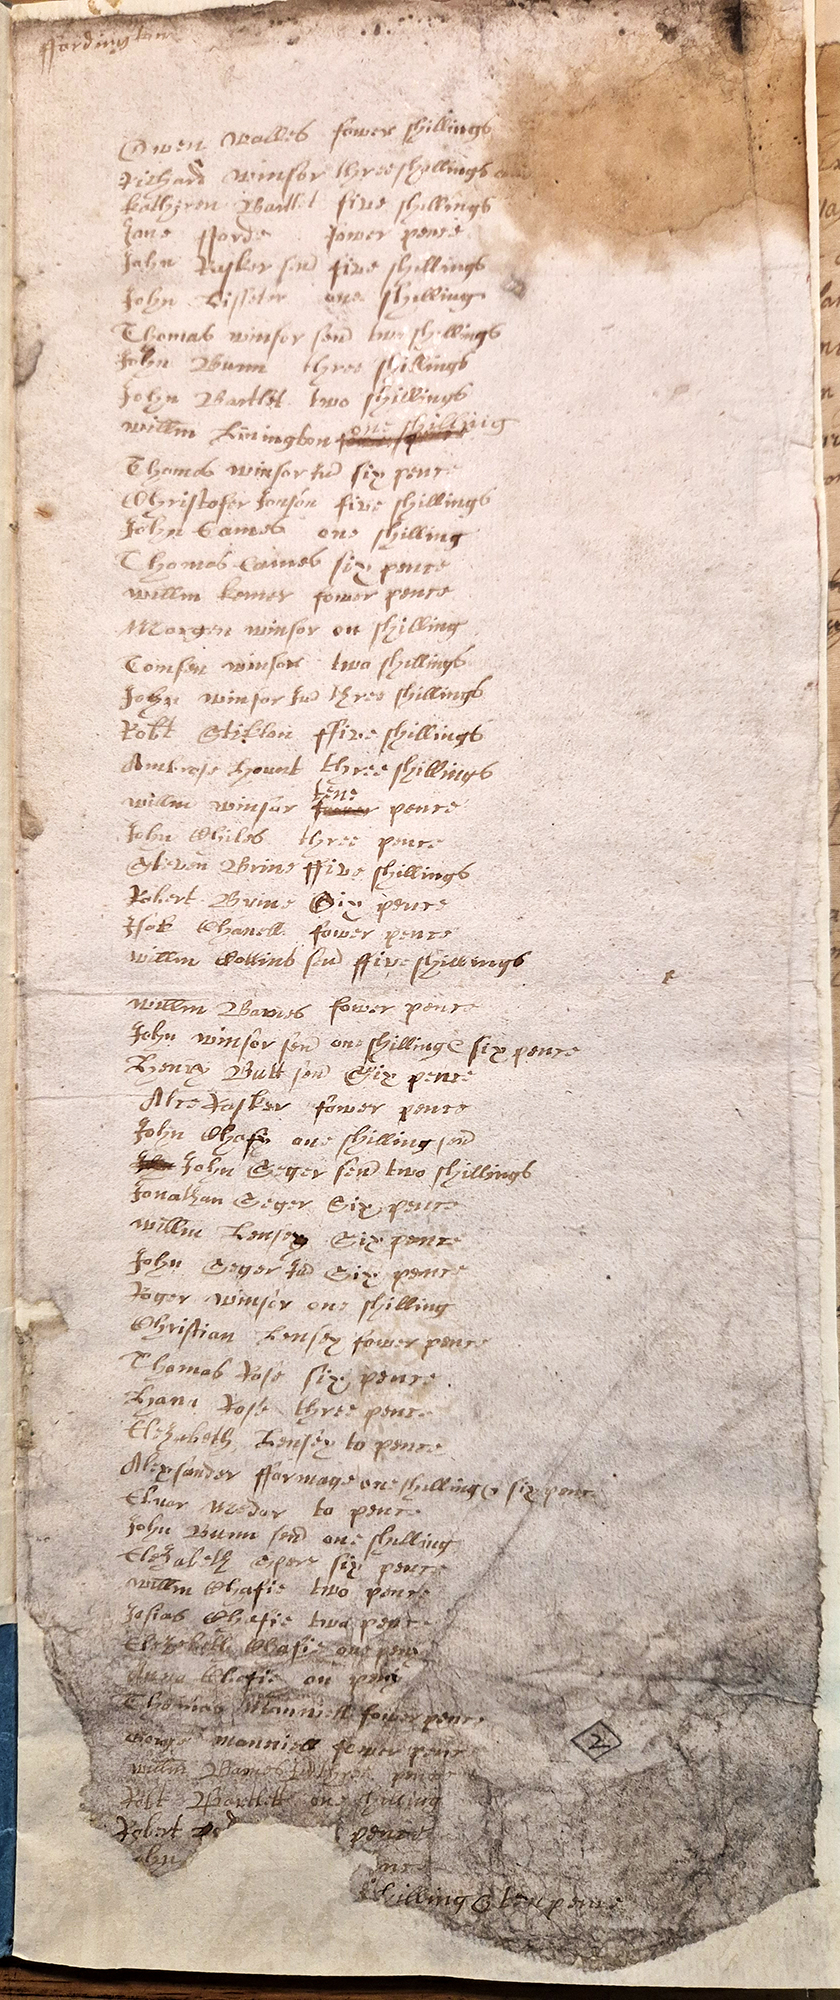 ffordington
Owen Walles fower shillings
Richard Winsor three shillings
Kathiren Bartlet five shillings
Jane fforde fower pence
John Rasker sen five shillings
John Lisseter one shilling
Thomas winsor sen two shillings
John Bunn three shillings
John Bartlet two shillings
willm Livington one shillinig
Thomas winsor Jud six pence
Christofer Jonson five shillings
John Eames one shilling
Thomas Eames six pence
willm kemer fower pence
Morgen winsor on shilling
Tomsen winsor two shillings
John winsor Jud three shillings
Robt Stiklan ffive shillings
Ambrose Hount three shillings
willm winsor tene pence
John Chiles three pence
Steven Brine ffive shillings
Robert Brine Six pence
Isak Chanell fower pence
willm Collins sen ffive shillings
willm Barnes fower pence
John winsor sen one shilling & six pence
Henry Butt sen Six pence
Alce Rasker fower pence
John Chafy one shilling sen
John Seger sen two shillings
Jonathan Seger Six pence
willm Hensey Six pence
John Seger Jud Six pence
Roger winsor one shilling
Christian Hensey fower pence
Thomas Rose six pence
Hana Rose three pence
Elezabeth Hensey to pence
Alexsander fformage one shilling & six pence
Elnor Medar to pence
John Bunn sen one shilling
Elezabeth Spere six pence
willm Chafie two pence
Josias Chafie two pence
Elezabeth Chafie one peny
Anna Chafie on peny
Thomas Manniell fower pence
George Manniell fower pence
willm Barnes Jud three pence
Robt Bartlett one shilling
Robert pence
ohn ence
shilling & ten pence
2